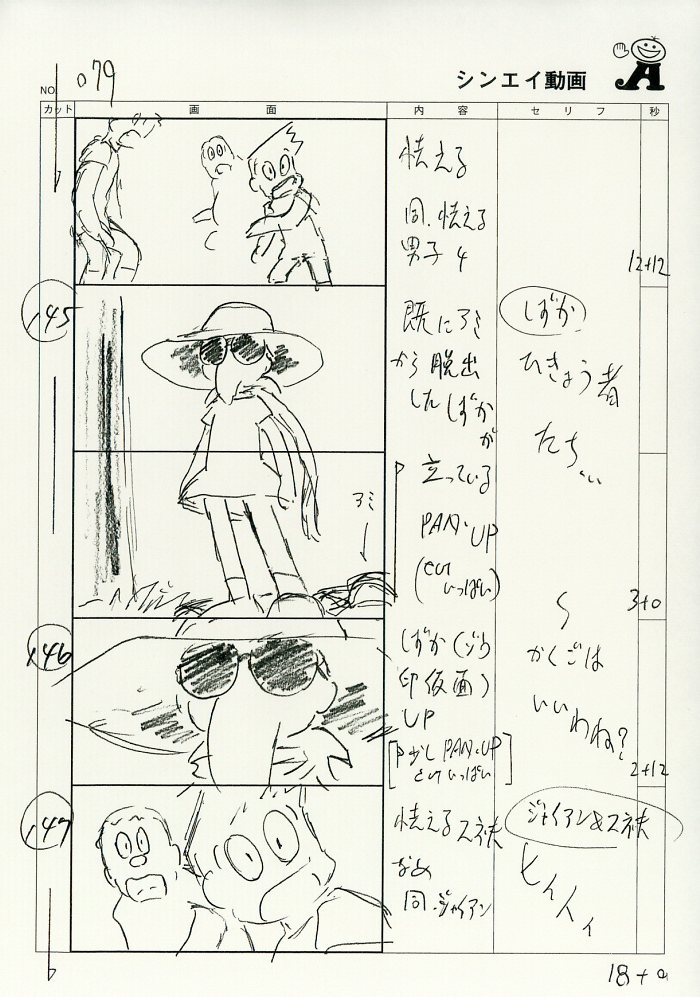 NO. 079
シンエイ動画
A
カット
画 面
内 容
セ リ フ
秒
怯える
同、怯える
男子4
12+12
145
既にアミ
から脱出
したしずか
が
立っている
PAN・UP
(じわ
いっぱい)
アミ
しずか
ひきょう者
たち、、
3+0
146
しずか(ゾウ
印仮面)
UP
少し PAN・UP
いっぱい
かくごは
いいわね?
2+12
147
怯えるスネ夫
なめ
同・ジャイアン
ジャイアン&スネ夫
ヒィィィ
18+0